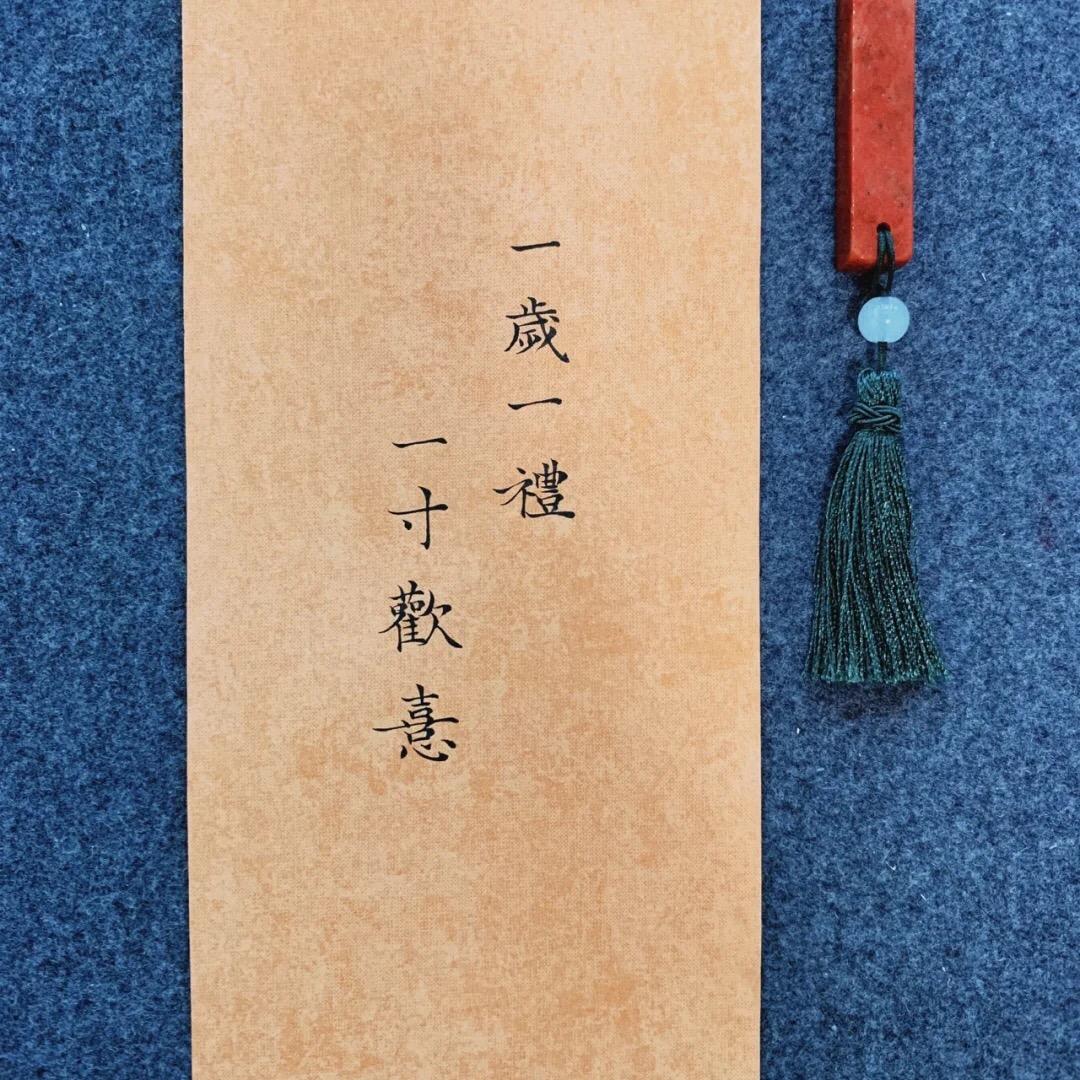 一歲一禮
一寸歡憙